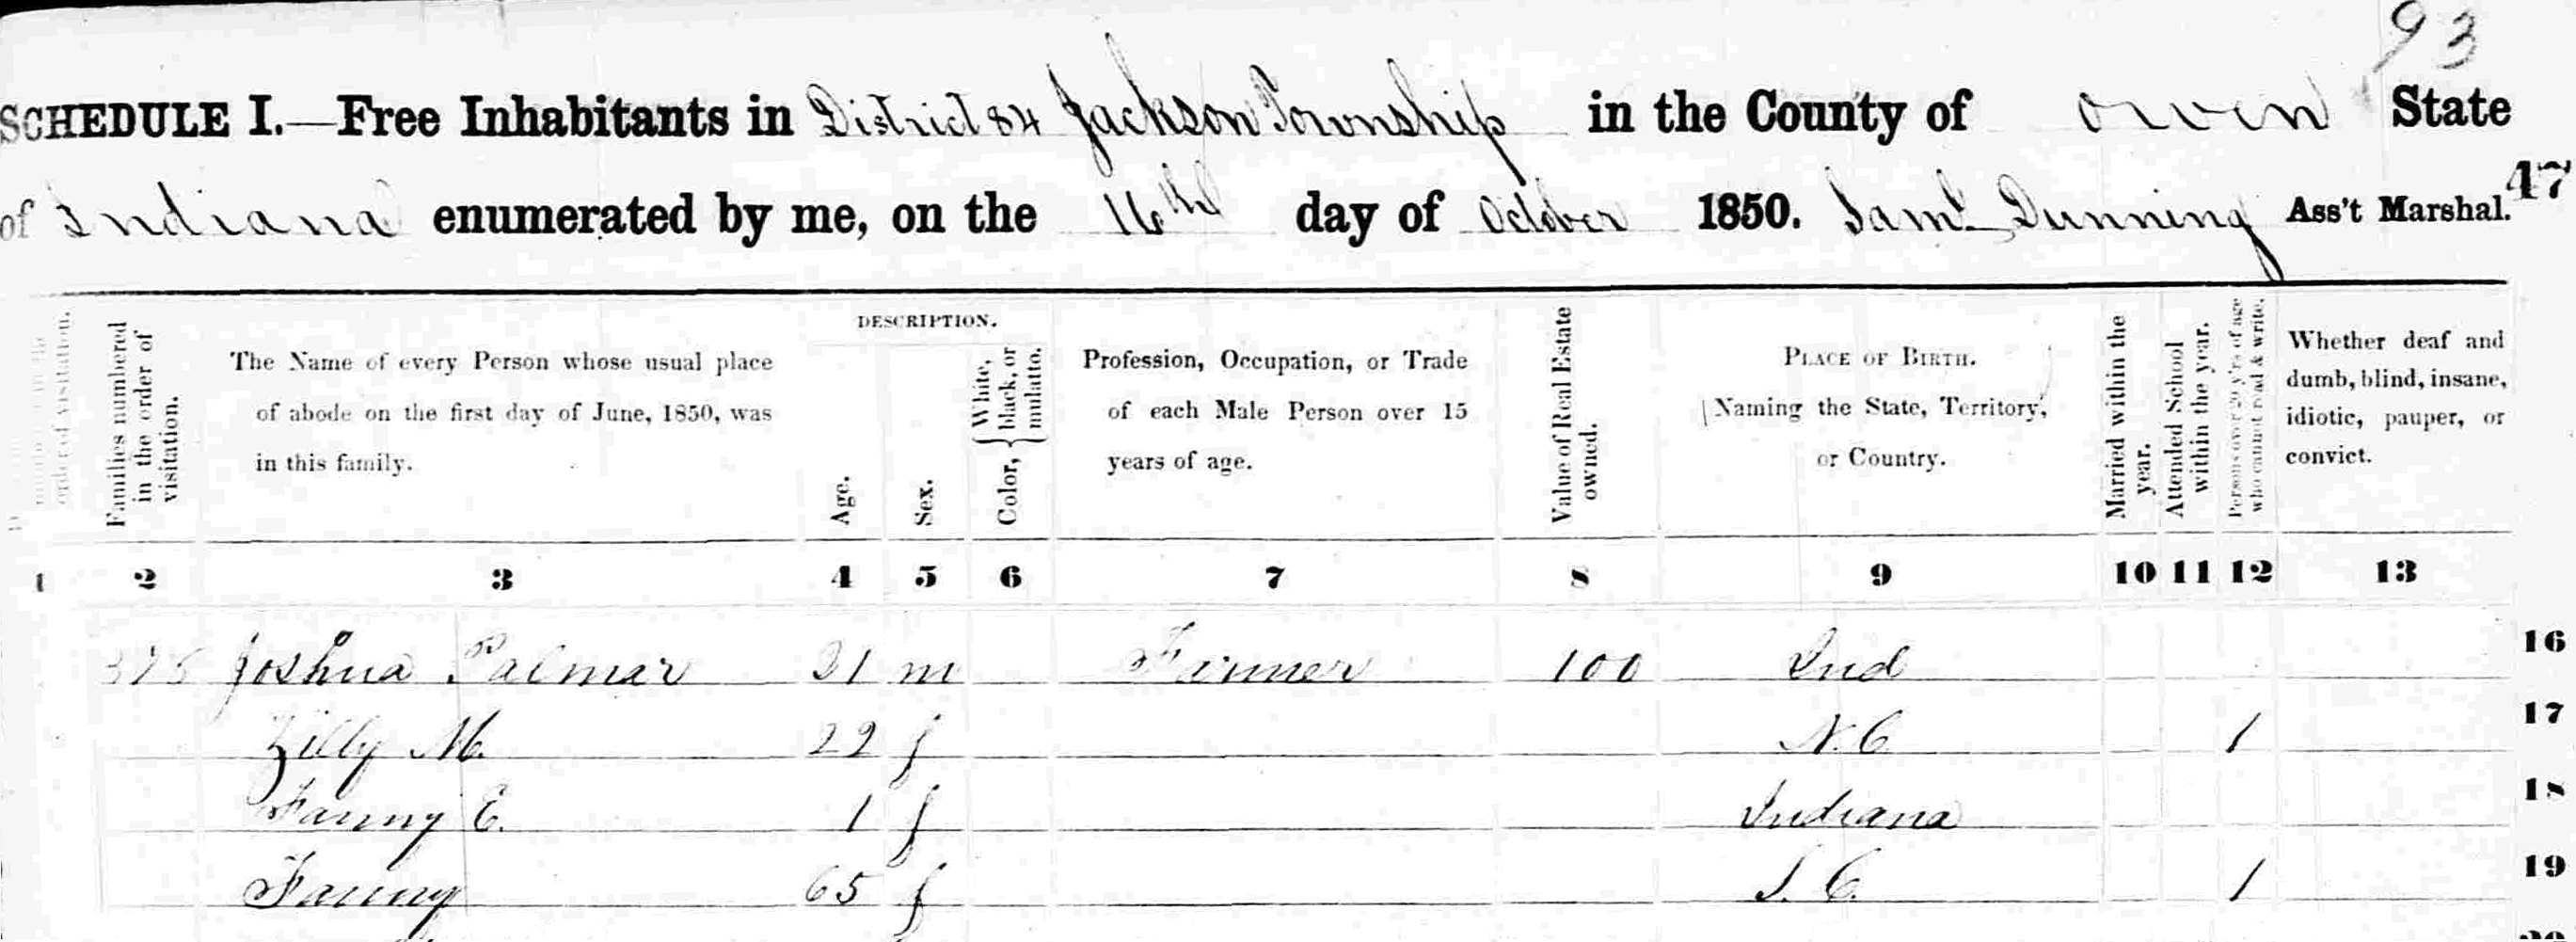 93
SCHEDULE I.—Free Inhabitants in District 84 Jackson Township in the County of Owen State
47
of Indiana enumerated by me, on the 16th day of October 1850. Saml Dunning Ass't Marshal.
order of visitation.
Families numbered in the order of visitation.
The Name of every Person whose usual place
of abode on the first day of June, 1850, was
in this family.
DESCRIPTION.
Age.
Sex.
Color, { White, black, or mulatto.
Profession, Occupation, or Trade
of each Male Person over 15
years of age.
Value of Real Estate owned.
PLACE OF BIRTH.
Naming the State, Territory,
or Country.
Married within the year.
Attended School within the year.
Persons over 20 y'rs of age who cannot read & write.
Whether deaf and
dumb, blind, insane,
idiotic, pauper, or
convict.
1 2 3 4 5 6 7 8 9 10 11 12 13
Joshua Palmar 21 m Farmer 100 Ind 16
Zilly M. 22 f N.C 1 17
Fanny E. 1 f Indiana 18
Fanny 65 f S.C. 1 19